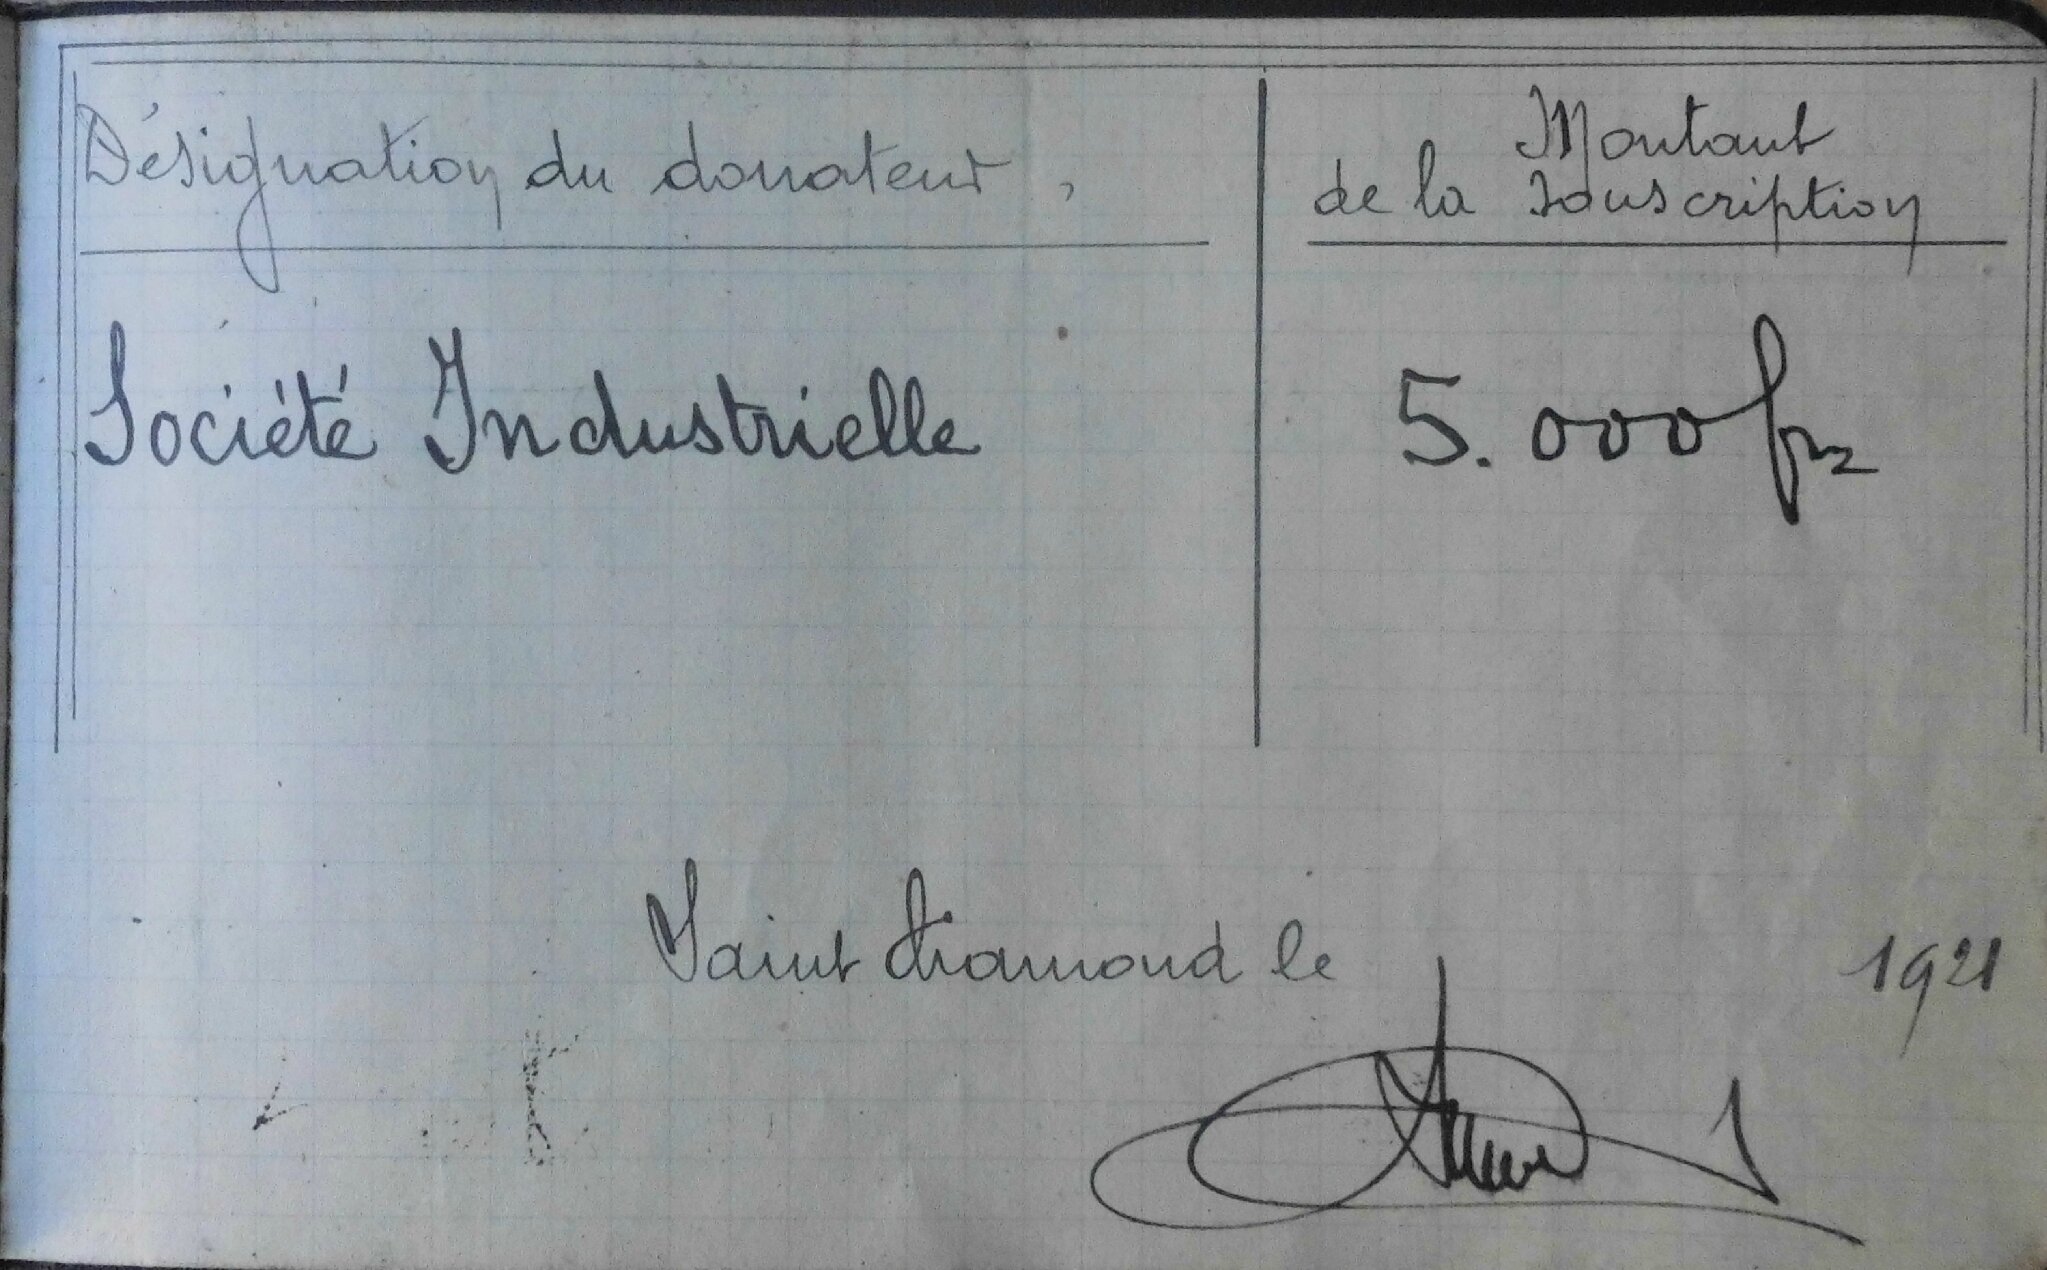 Désignation du donateur,
Montant
de la souscription
Société Industrielle
5.000 frs
Saint Chamond le 1921